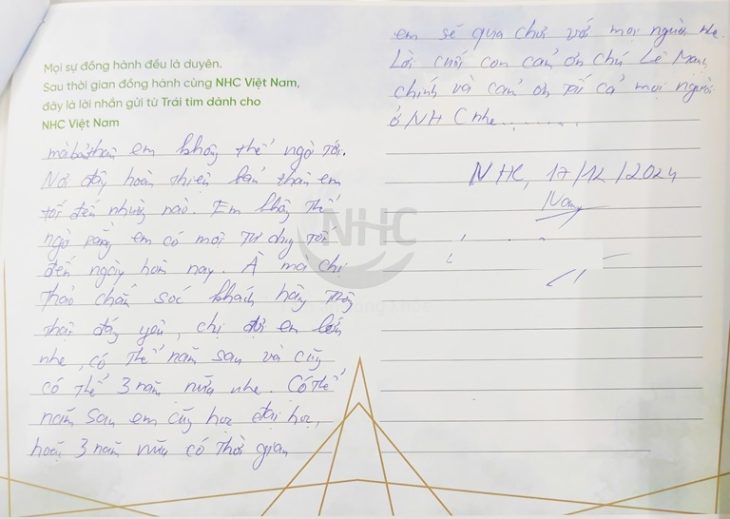 Mọi sự đồng hành đều là duyên.
Sau thời gian đồng hành cùng NHC Việt Nam,
đây là lời nhắn gửi từ Trái tim dành cho
NHC Việt Nam
mà bản thân em không thể ngờ tới.
Nơi đây hoàn thiện bản thân em
tốt đến nhường nào. Em không thể
ngờ rằng em có một tư duy tốt
đến ngày hôm nay. À mà chị
Thảo chăm sóc khách hàng
thật đáng yêu, chị đợi em lớn
nhe, có thể năm sau và cũng
có thể 3 năm nữa nhe. Có thể
năm sau em cũng học đại học,
hoặc 3 năm nữa có thời gian
em sẽ qua chơi với mọi người nhe.
Lời cuối con cảm ơn chú Lê
chính và cảm ơn tất cả mọi người
ở NHC nhe..........
NHC, 17/12/2024
Nam
NHC